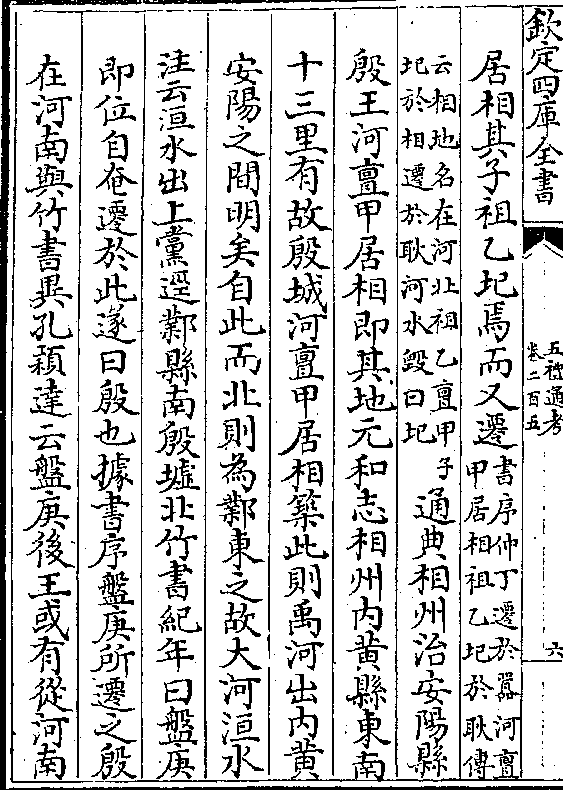 欽定四庫全書
五禮通考
卷二百五
六
居相其子祖乙圮焉而又遷書序仲丁遷於囂河亶
甲居相祖乙圮於耿傳
云相地名在河北祖乙亶甲子
圮於相遷於耿河水毀曰圮
通典相州治安陽縣
殷王河亶甲居相即其地元和志相州内黄縣東南
十三里有故殷城河亶甲居相築此則禹河出内黄
安陽之間明矣自此而北則為鄴東之故大河洹水
注云洹水出上黨逕鄴縣南殷墟北竹書紀年曰盤庚
即位自奄遷於此遂曰殷也據書序盤庚所遷之殷
在河南與竹書異孔穎達云盤庚後王或有從河南